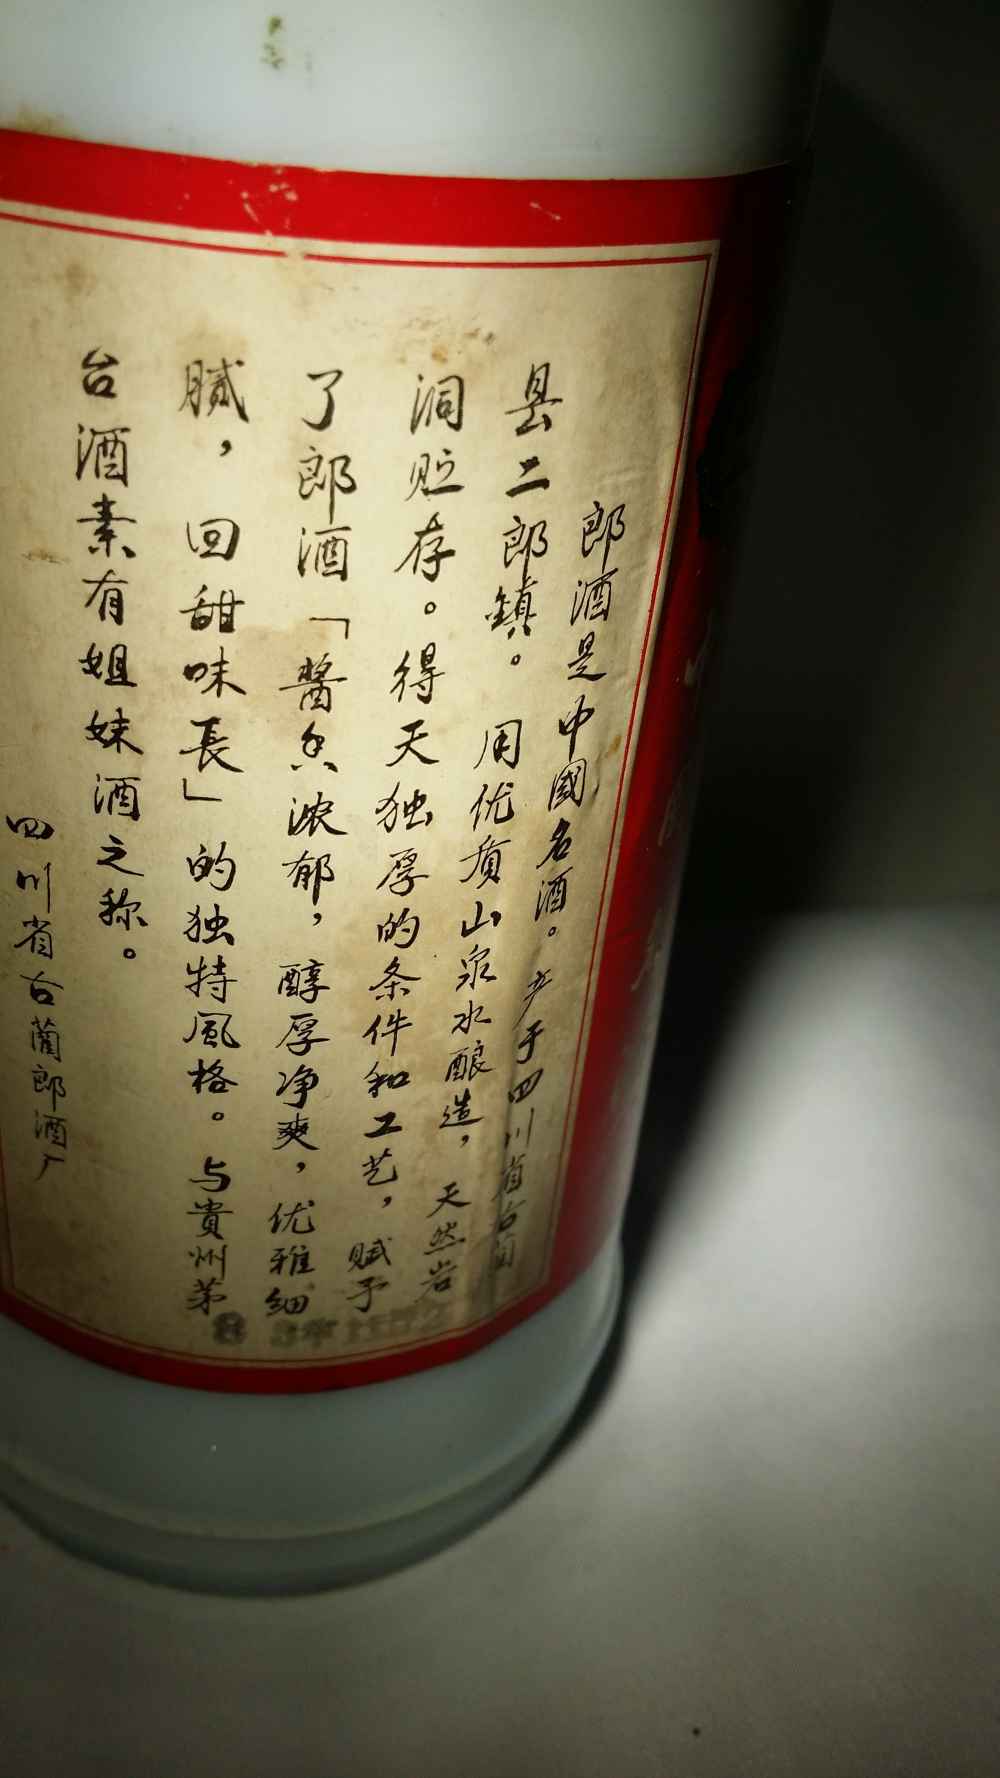 郎酒是中國名酒。产于四川省古藺
县二郎鎮。用优质山泉水酿造，天然岩
洞贮存。得天独厚的条件和工艺，赋予
了郎酒「醬香浓郁，醇厚净爽，优雅细
腻，回甜味長」的独特風格。与貴州茅
台酒素有姐妹酒之称。
四川省古藺郎酒厂